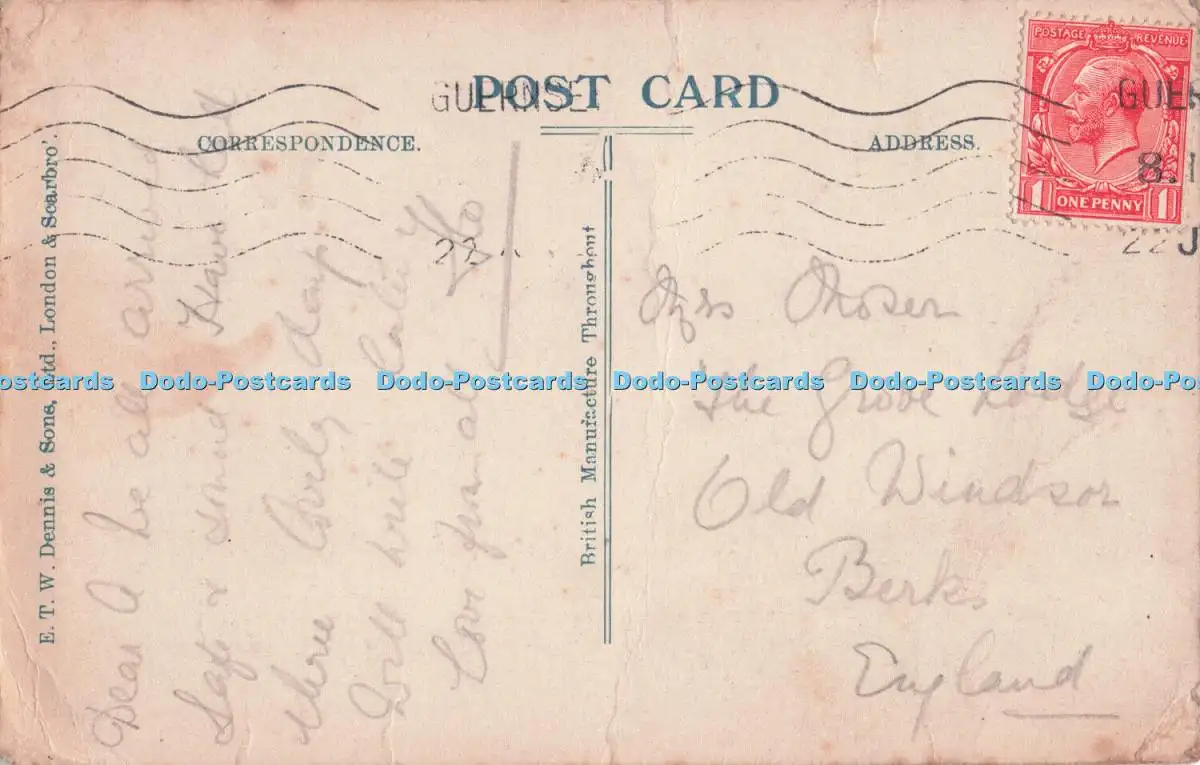 POST CARD
CORRESPONDENCE.
ADDRESS.
GUERNSE
GUER
8.1
22 J
22
POSTAGE REVENUE
1 ONE PENNY 1
E. T. W. Dennis & Sons, Ltd., London & Scarbro'.
British Manufacture Throughout
Dear A we all arrived
Safe & sound Have had
three days
Will write later
Love from all Flo
Mrs Moser
The Grove Lodge
Old Windsor
Berks
England
Dodo-Postcards Dodo-Postcards Dodo-Postcards Dodo-Postcards Dodo-Postcards Dodo-Po